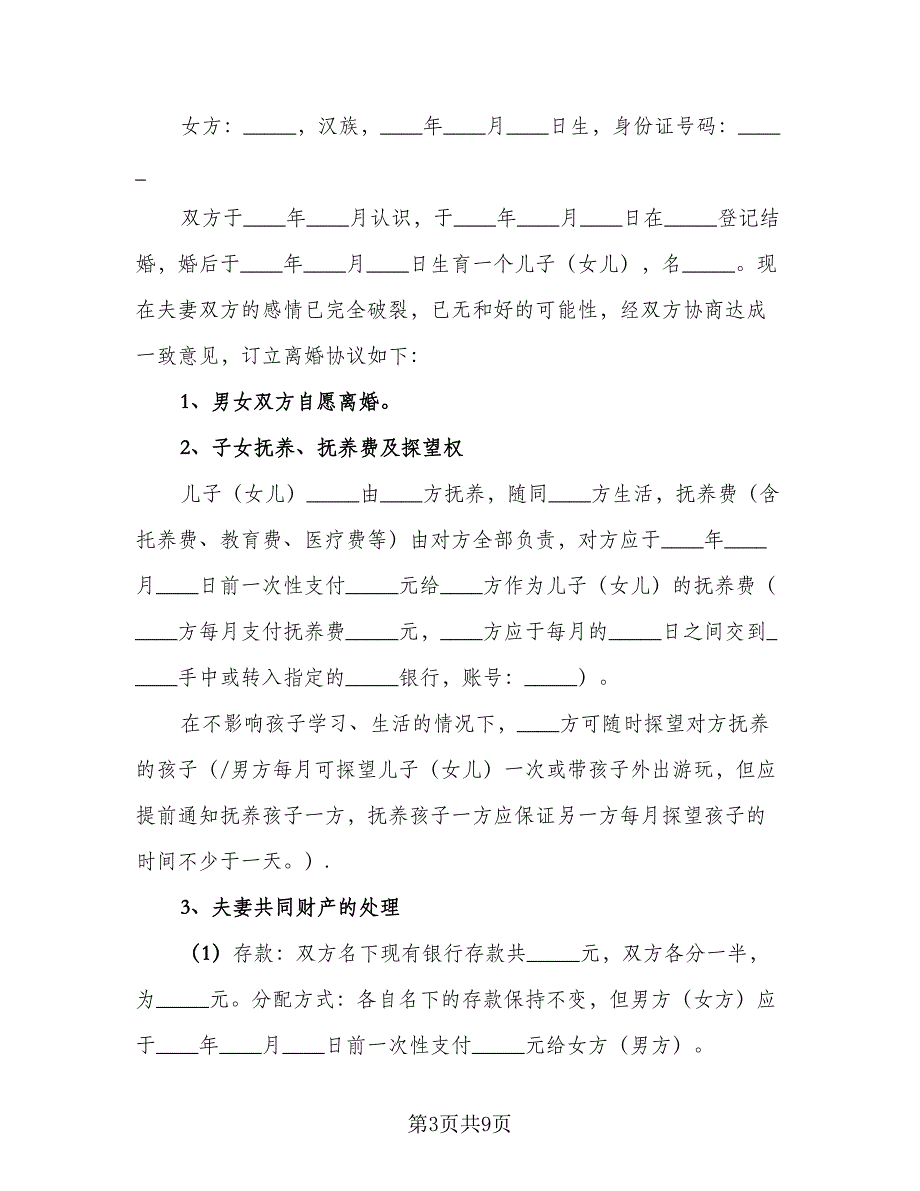 女方：_____，汉族，____年____月____日生，身份证号码：____
_
双方于____年____月认识，于____年____月____日在_____登记结
婚，婚后于____年____月____日生育一个儿子（女儿），名_____。现
在夫妻双方的感情已完全破裂，已无和好的可能性，经双方协商达成
一致意见，订立离婚协议如下：
1、男女双方自愿离婚。
2、子女抚养、抚养费及探望权
儿子（女儿）_____由____方抚养，随同____方生活，抚养费（含
托养费、教育费、医疗费等）由对方全部负责，对方应于____年____
月____日前一次性支付_____元给____方作为儿子（女儿）的抚养费（
____方每月支付抚养费_____元，____方应于每月的_____日之间交到_
____手中或转入指定的_____银行，账号：_____）。
在不影响孩子学习、生活的情况下，____方可随时探望对方抚养
的孩子（/男方每月可探望儿子（女儿）一次或带孩子外出游玩，但应
提前通知抚养孩子一方，抚养孩子一方应保证另一方每月探望孩子的
时间不少于一天。）.
3、夫妻共同财产的处理
（1）存款：双方名下现有银行存款共_____元，双方各分一半，
为_____元。分配方式：各自名下的存款保持不变，但男方（女方）应
于____年____月____日前一次性支付_____元给女方（男方）。
第3页共9页